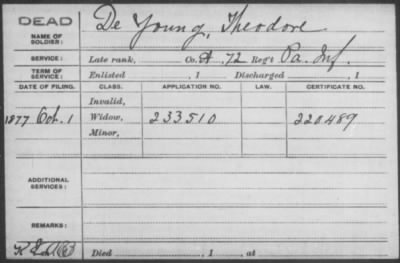 DEAD
NAME OF SOLDIER: De Young, Theodore
SERVICE: Late rank, Co. A. 72 Reg't Pa. Inf.
TERM OF SERVICE: Enlisted , 1 Discharged , 1
DATE OF FILING. CLASS. APPLICATION NO. LAW. CERTIFICATE NO.
Invalid,
1877 Oct. 1 Widow, 233510 220489
Minor,
ADDITIONAL SERVICES:
REMARKS:
Died , 1 , at